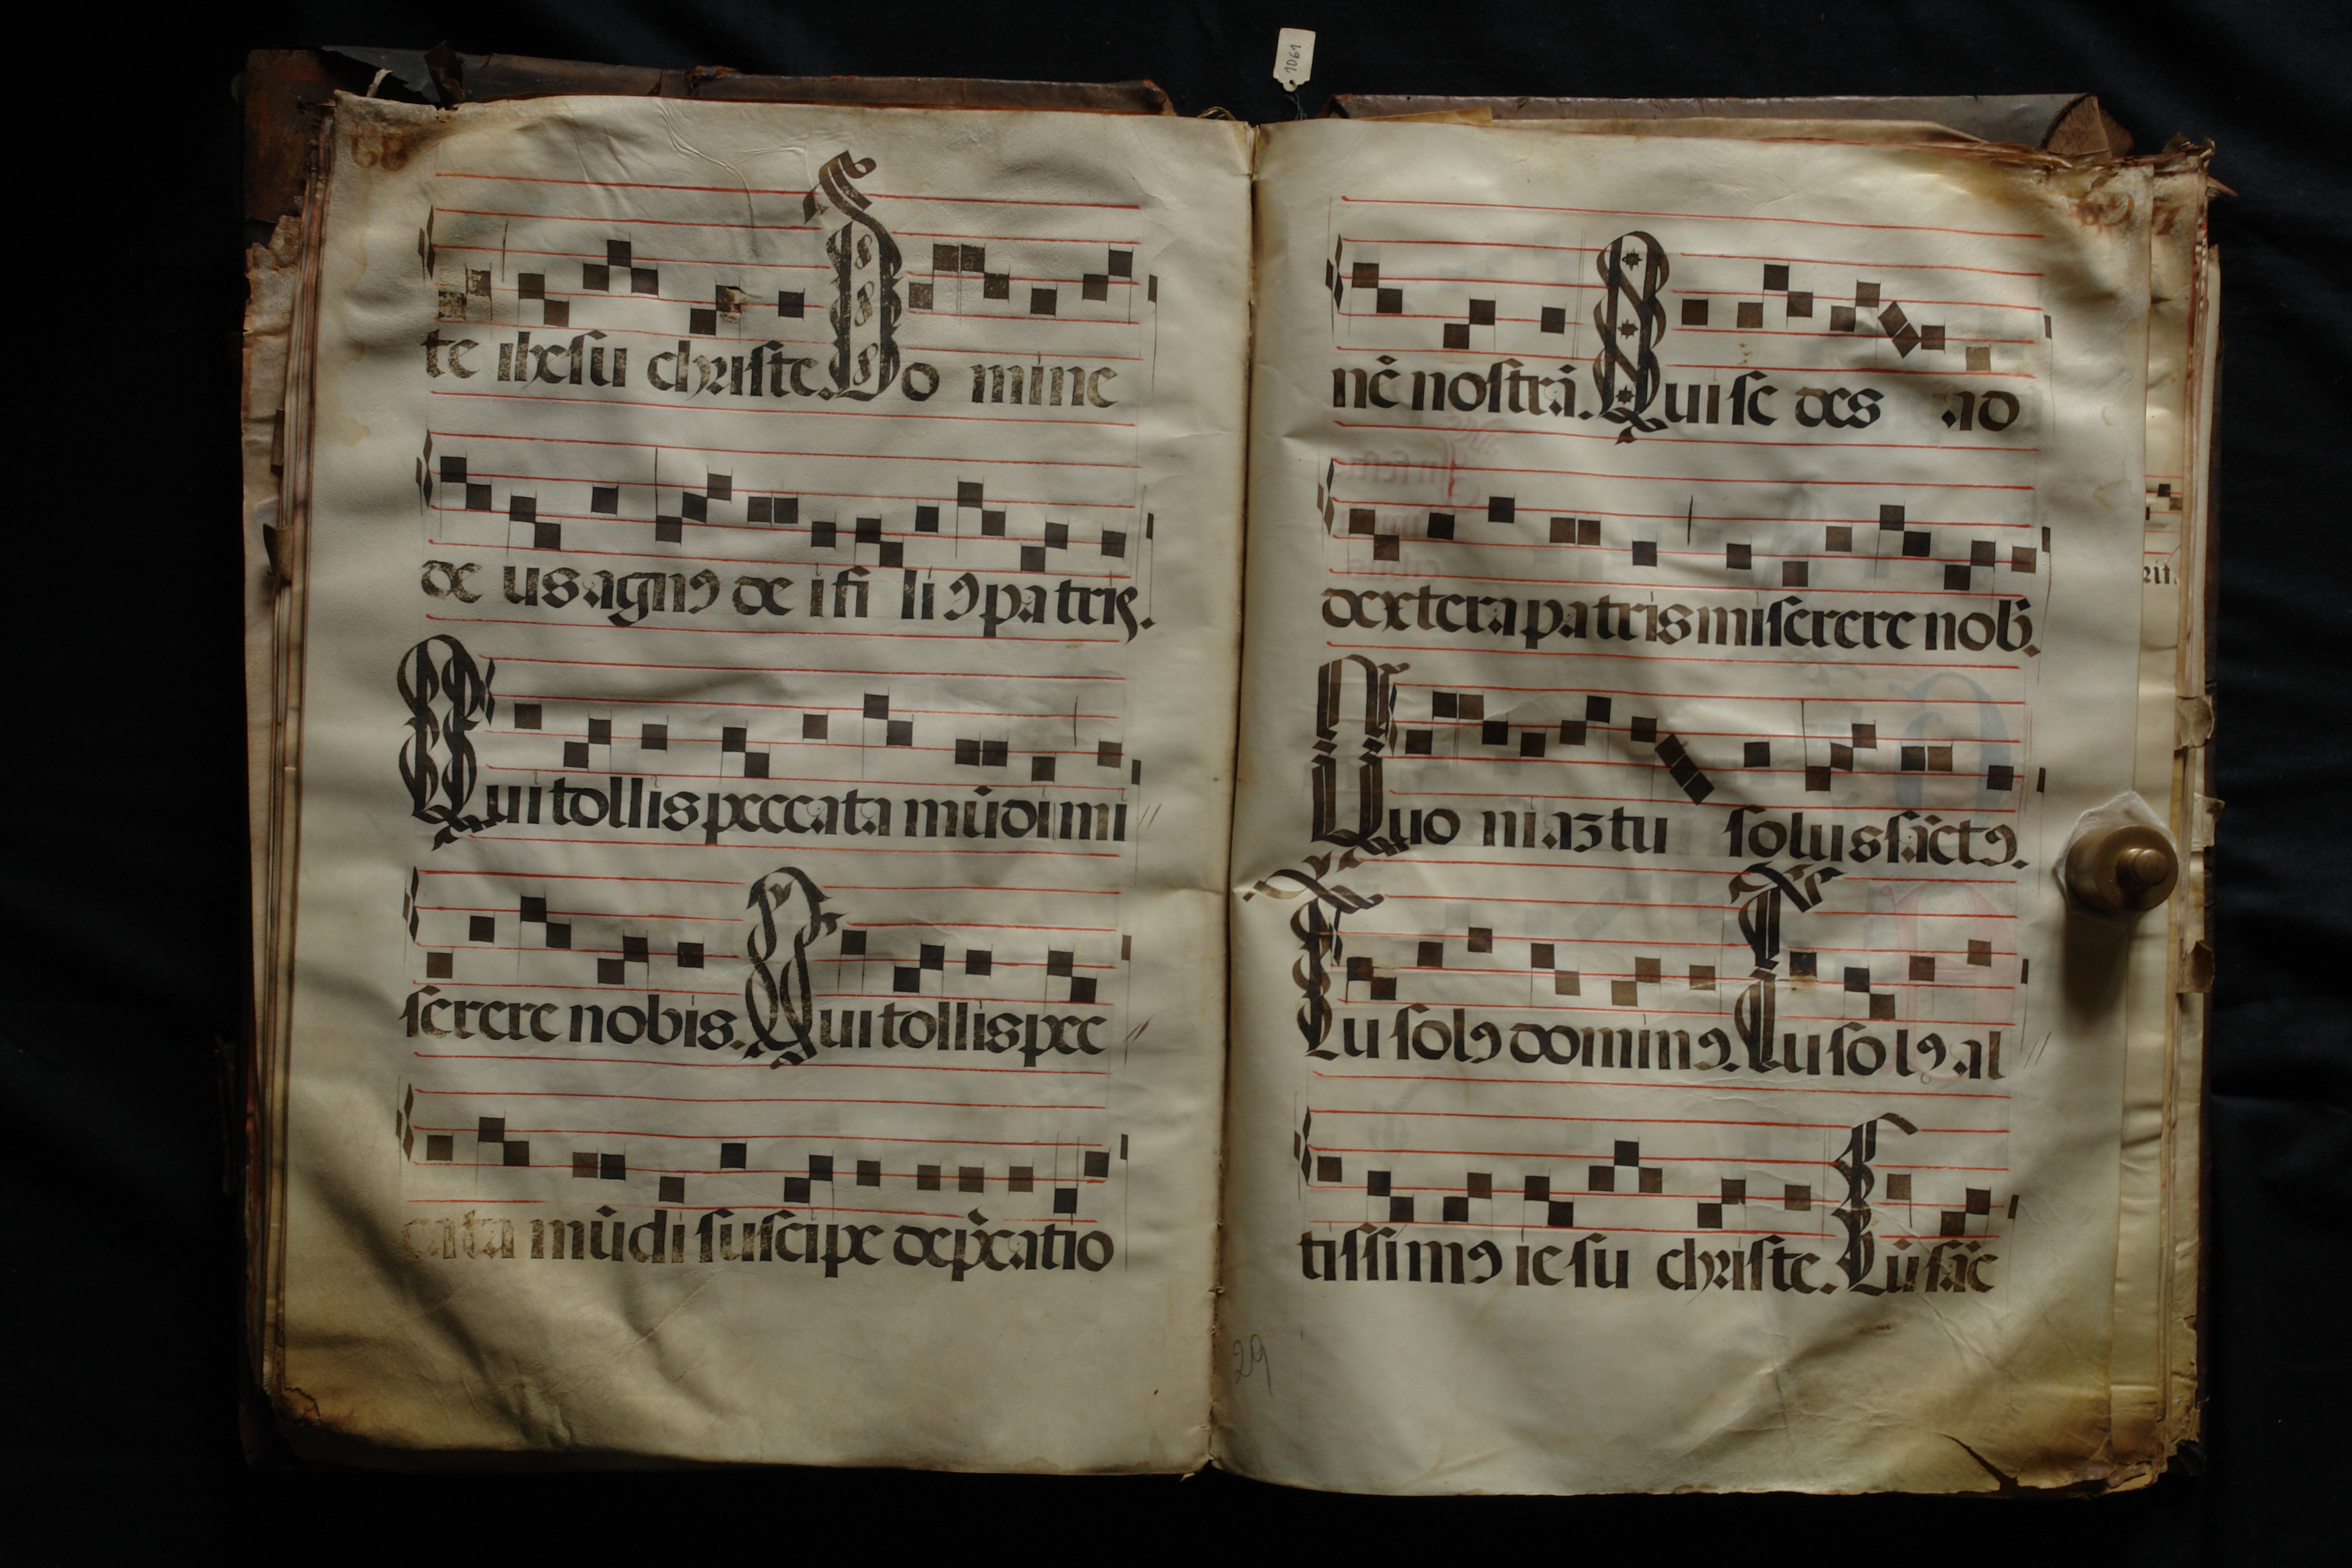 1061
58
te ihesu christe. Do mine
de us agnꝰ de i fi li ꝰ pa tris.
Qui tollis peccata mūdi mi
serere nobis. Qui tollis pec
cata mūdi suscipe dep̄catio
nē nostrā. Qui se des ad
dextera patris miserere nob̄.
Quo niaʒ tu solus sāctꝰ.
Tu solꝰ dominꝰ. Tu so lꝰ al
tissimꝰ ie su christe. Cū sāc
29